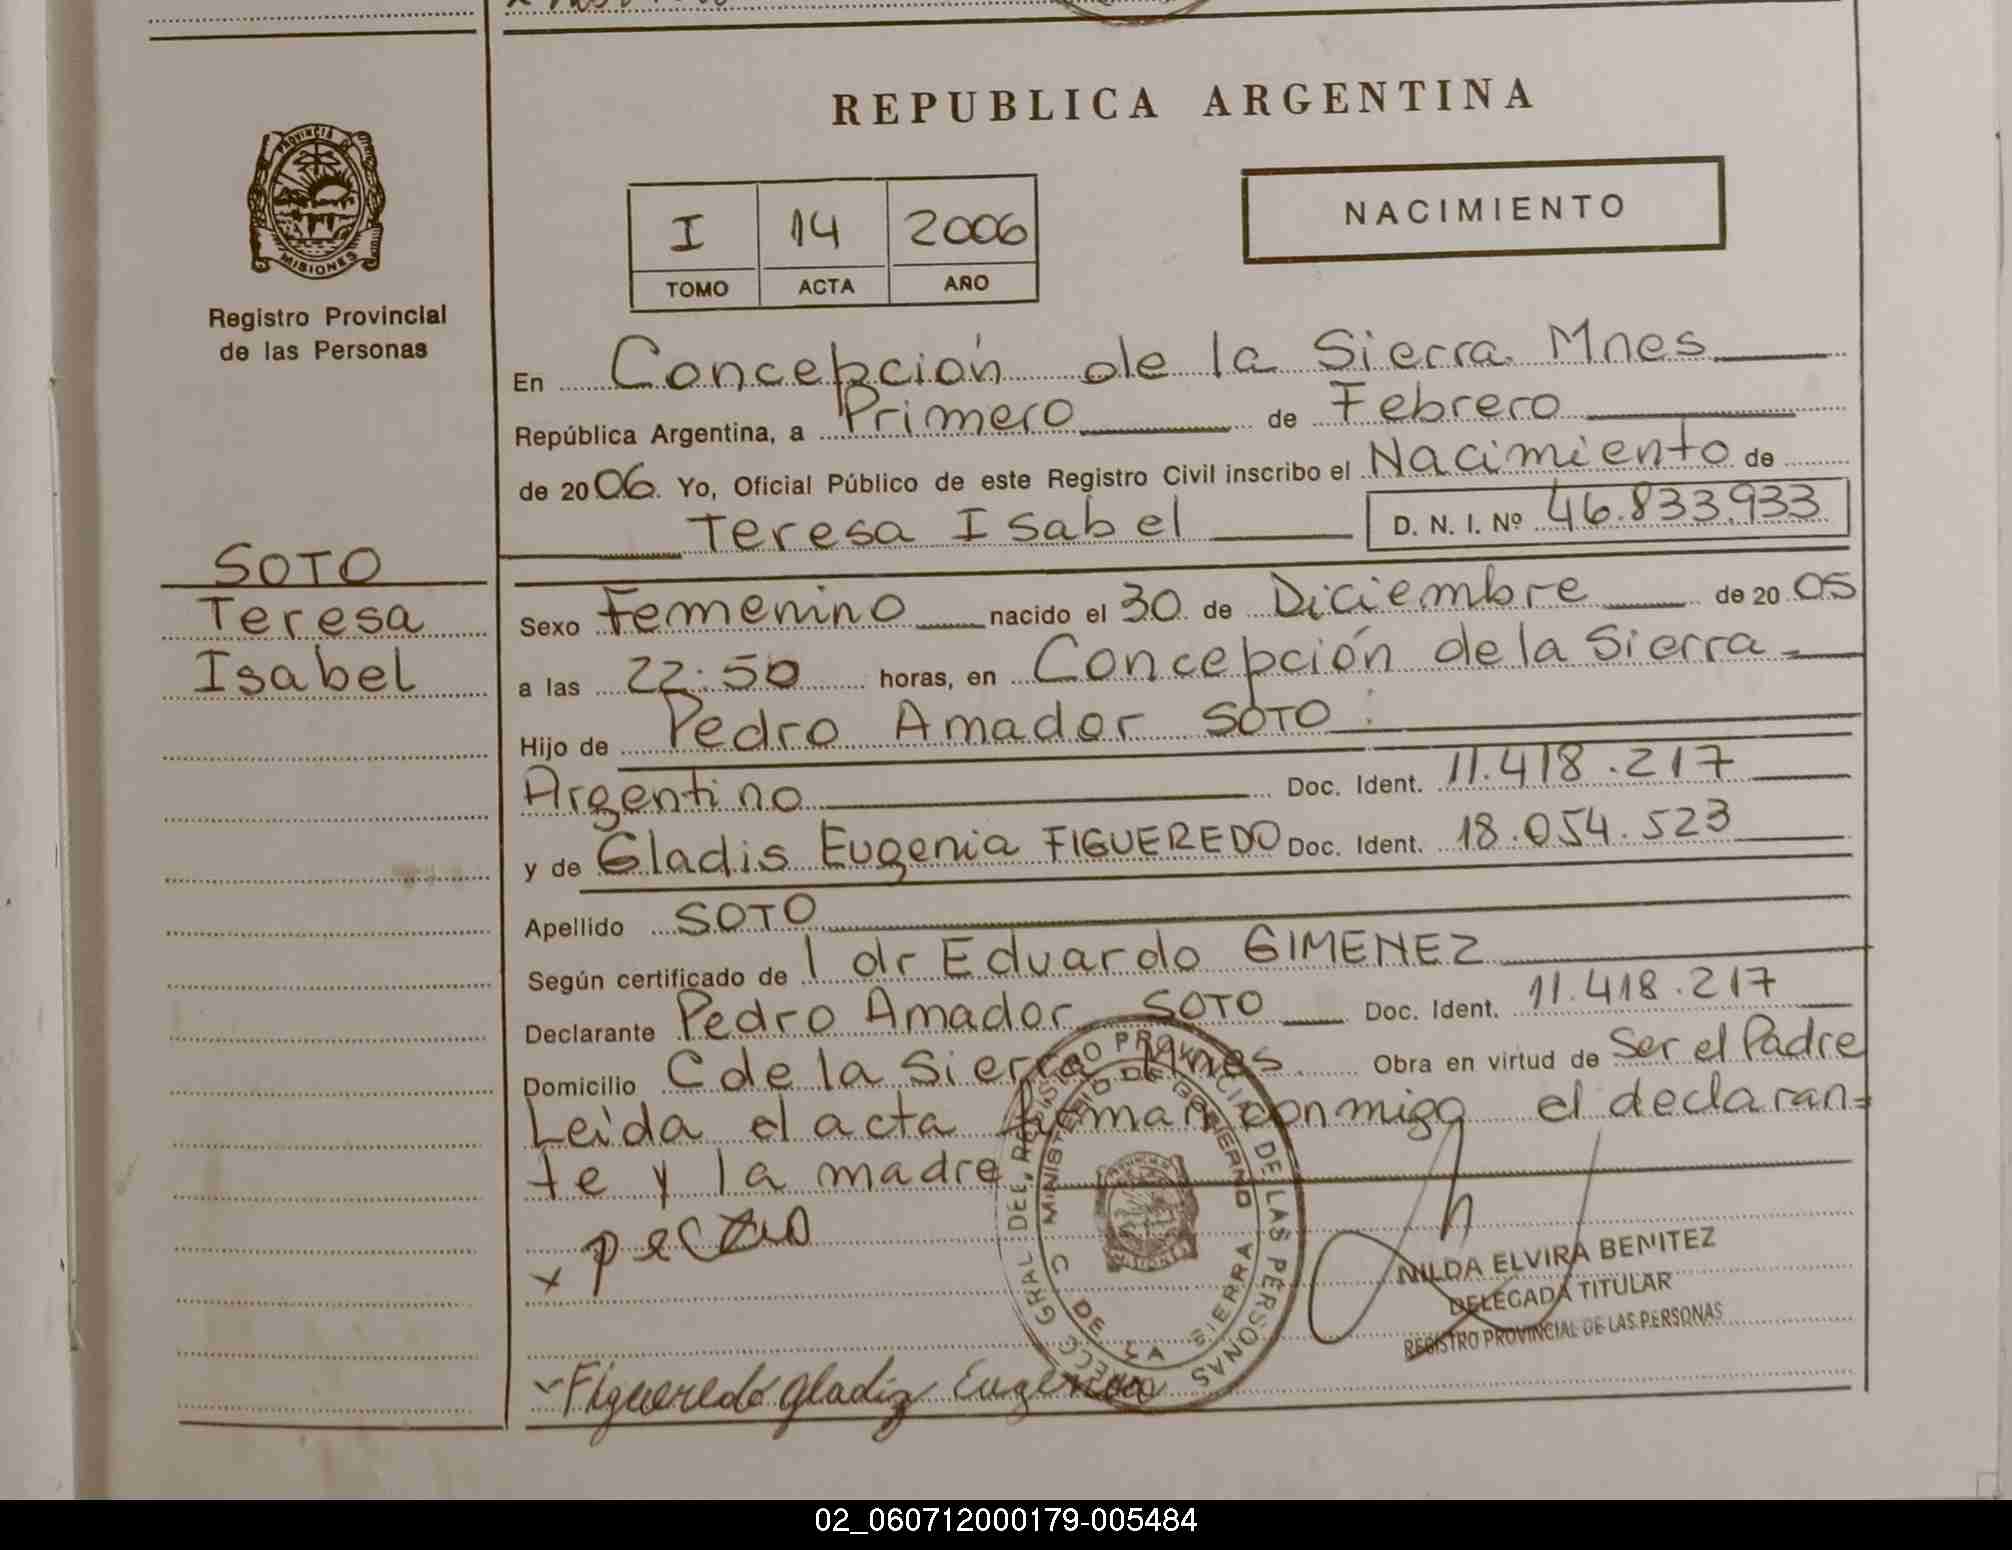 REPUBLICA ARGENTINA
PROVINCIA DE
MISIONES
Registro Provincial
de las Personas
I 14 2006
TOMO ACTA AÑO
NACIMIENTO
En Concepción de la Sierra Mnes
República Argentina, a Primero de Febrero
de 2006. Yo, Oficial Público de este Registro Civil inscribo el Nacimiento de
Teresa Isabel D. N. I. Nº 46.833.933
SOTO
Teresa
Isabel
Sexo Femenino nacido el 30 de Diciembre de 20 05
a las 22:50 horas, en Concepción de la Sierra
Hijo de Pedro Amador SOTO
Argentino Doc. Ident. 11.418.217
y de Gladis Eugenia FIGUEREDO Doc. Ident. 18.054.523
Apellido SOTO
Según certificado de l dr Eduardo GIMENEZ
Declarante Pedro Amador SOTO Doc. Ident. 11.418.217
Domicilio C de la Sierra Mnes Obra en virtud de Ser el Padre
Leida el acta firman conmigo el declaran=
te y la madre
x
DEL REGISTRO PROVINCIAL DE LAS PERSONAS
MINISTERIO DE GOBIERNO
C DE LA SIERRA
NILDA ELVIRA BENITEZ
DELEGADA TITULAR
REGISTRO PROVINCIAL DE LAS PERSONAS
Figueredo Gladiz Eugenia
02_060712000179-005484